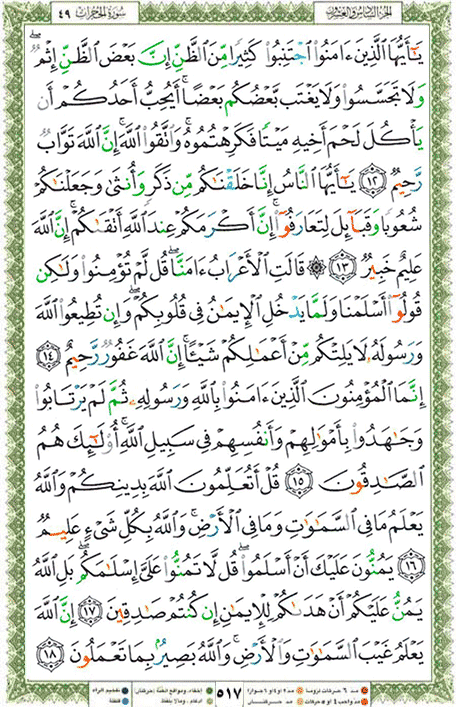 سُورَةُ الحُجُرَاتِ ٤٩
الجزء السادس والعشرون
يَـٰٓأَيُّهَا ٱلَّذِينَ ءَامَنُوا۟ ٱجْتَنِبُوا۟ كَثِيرًا مِّنَ ٱلظَّنِّ إِنَّ بَعْضَ ٱلظَّنِّ إِثْمٌ ۖ
وَلَا تَجَسَّسُوا۟ وَلَا يَغْتَب بَّعْضُكُم بَعْضًا ۚ أَيُحِبُّ أَحَدُكُمْ أَن
يَأْكُلَ لَحْمَ أَخِيهِ مَيْتًا فَكَرِهْتُمُوهُ ۚ وَٱتَّقُوا۟ ٱللَّهَ ۚ إِنَّ ٱللَّهَ تَوَّابٌ
رَّحِيمٌ ١٢ يَـٰٓأَيُّهَا ٱلنَّاسُ إِنَّا خَلَقْنَـٰكُم مِّن ذَكَرٍ وَأُنثَىٰ وَجَعَلْنَـٰكُمْ
شُعُوبًا وَقَبَآئِلَ لِتَعَارَفُوٓا۟ ۚ إِنَّ أَكْرَمَكُمْ عِندَ ٱللَّهِ أَتْقَىٰكُمْ ۚ إِنَّ ٱللَّهَ
عَلِيمٌ خَبِيرٌ ١٣ ۞ قَالَتِ ٱلْأَعْرَابُ ءَامَنَّا ۖ قُل لَّمْ تُؤْمِنُوا۟ وَلَـٰكِن
قُولُوٓا۟ أَسْلَمْنَا وَلَمَّا يَدْخُلِ ٱلْإِيمَـٰنُ فِى قُلُوبِكُمْ ۖ وَإِن تُطِيعُوا۟ ٱللَّهَ
وَرَسُولَهُۥ لَا يَلِتْكُم مِّنْ أَعْمَـٰلِكُمْ شَيْـًٔا ۚ إِنَّ ٱللَّهَ غَفُورٌ رَّحِيمٌ ١٤
إِنَّمَا ٱلْمُؤْمِنُونَ ٱلَّذِينَ ءَامَنُوا۟ بِٱللَّهِ وَرَسُولِهِۦ ثُمَّ لَمْ يَرْتَابُوا۟
وَجَـٰهَدُوا۟ بِأَمْوَٰلِهِمْ وَأَنفُسِهِمْ فِى سَبِيلِ ٱللَّهِ ۚ أُو۟لَـٰٓئِكَ هُمُ
ٱلصَّـٰدِقُونَ ١٥ قُلْ أَتُعَلِّمُونَ ٱللَّهَ بِدِينِكُمْ وَٱللَّهُ
يَعْلَمُ مَا فِى ٱلسَّمَـٰوَٰتِ وَمَا فِى ٱلْأَرْضِ ۚ وَٱللَّهُ بِكُلِّ شَىْءٍ عَلِيمٌ
١٦ يَمُنُّونَ عَلَيْكَ أَنْ أَسْلَمُوا۟ ۖ قُل لَّا تَمُنُّوا۟ عَلَىَّ إِسْلَـٰمَكُم ۖ بَلِ ٱللَّهُ
يَمُنُّ عَلَيْكُمْ أَنْ هَدَىٰكُمْ لِلْإِيمَـٰنِ إِن كُنتُمْ صَـٰدِقِينَ ١٧ إِنَّ ٱللَّهَ
يَعْلَمُ غَيْبَ ٱلسَّمَـٰوَٰتِ وَٱلْأَرْضِ ۚ وَٱللَّهُ بَصِيرٌۢ بِمَا تَعْمَلُونَ ١٨
٥١٧